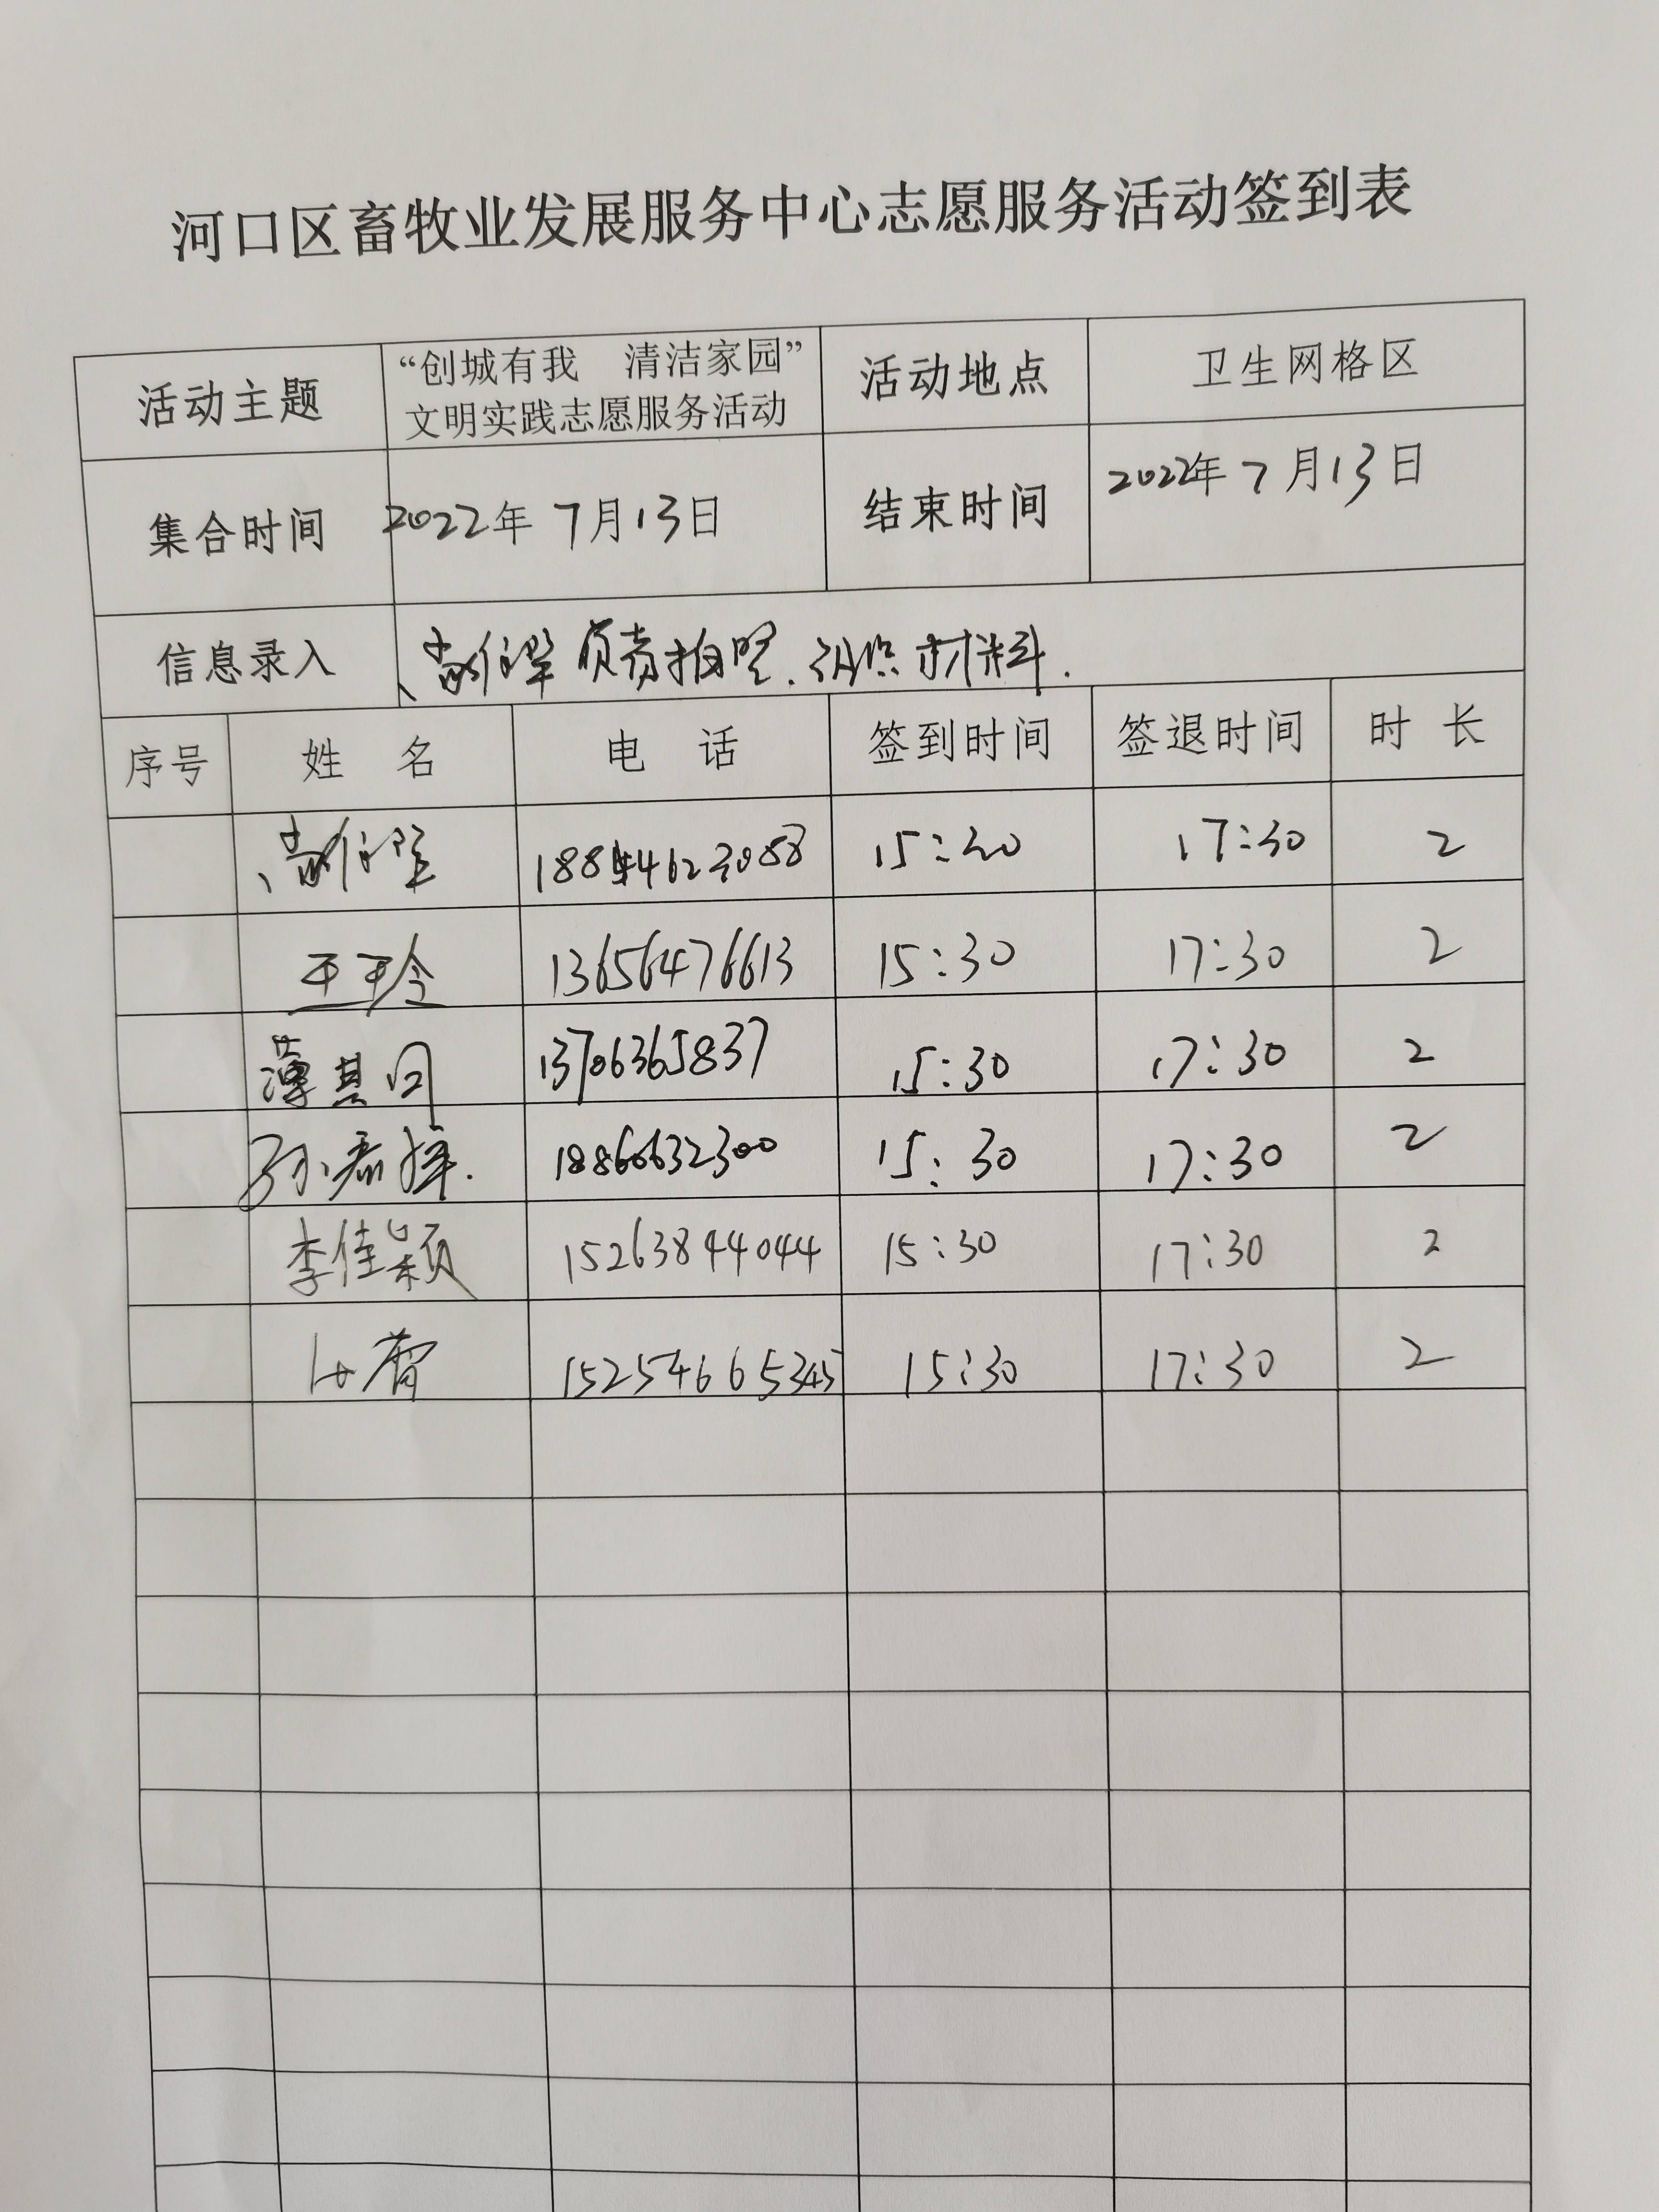 河口区畜牧业发展服务中心志愿服务活动签到表
活动主题 “创城有我 清洁家园” 活动地点 卫生网格区
文明实践志愿服务活动
集合时间 2022年7月13日 结束时间 2022年7月13日
信息录入 负责拍照、材料.
序号 姓 名 电 话 签到时间 签退时间 时 长
15:30 17:30 2
13656476613 15:30 17:30 2
薄其同 13706365837 15:30 17:30 2
孙 18866632300 15:30 17:30 2
李佳颖 15263844044 15:30 17:30 2
15254665345 15:30 17:30 2